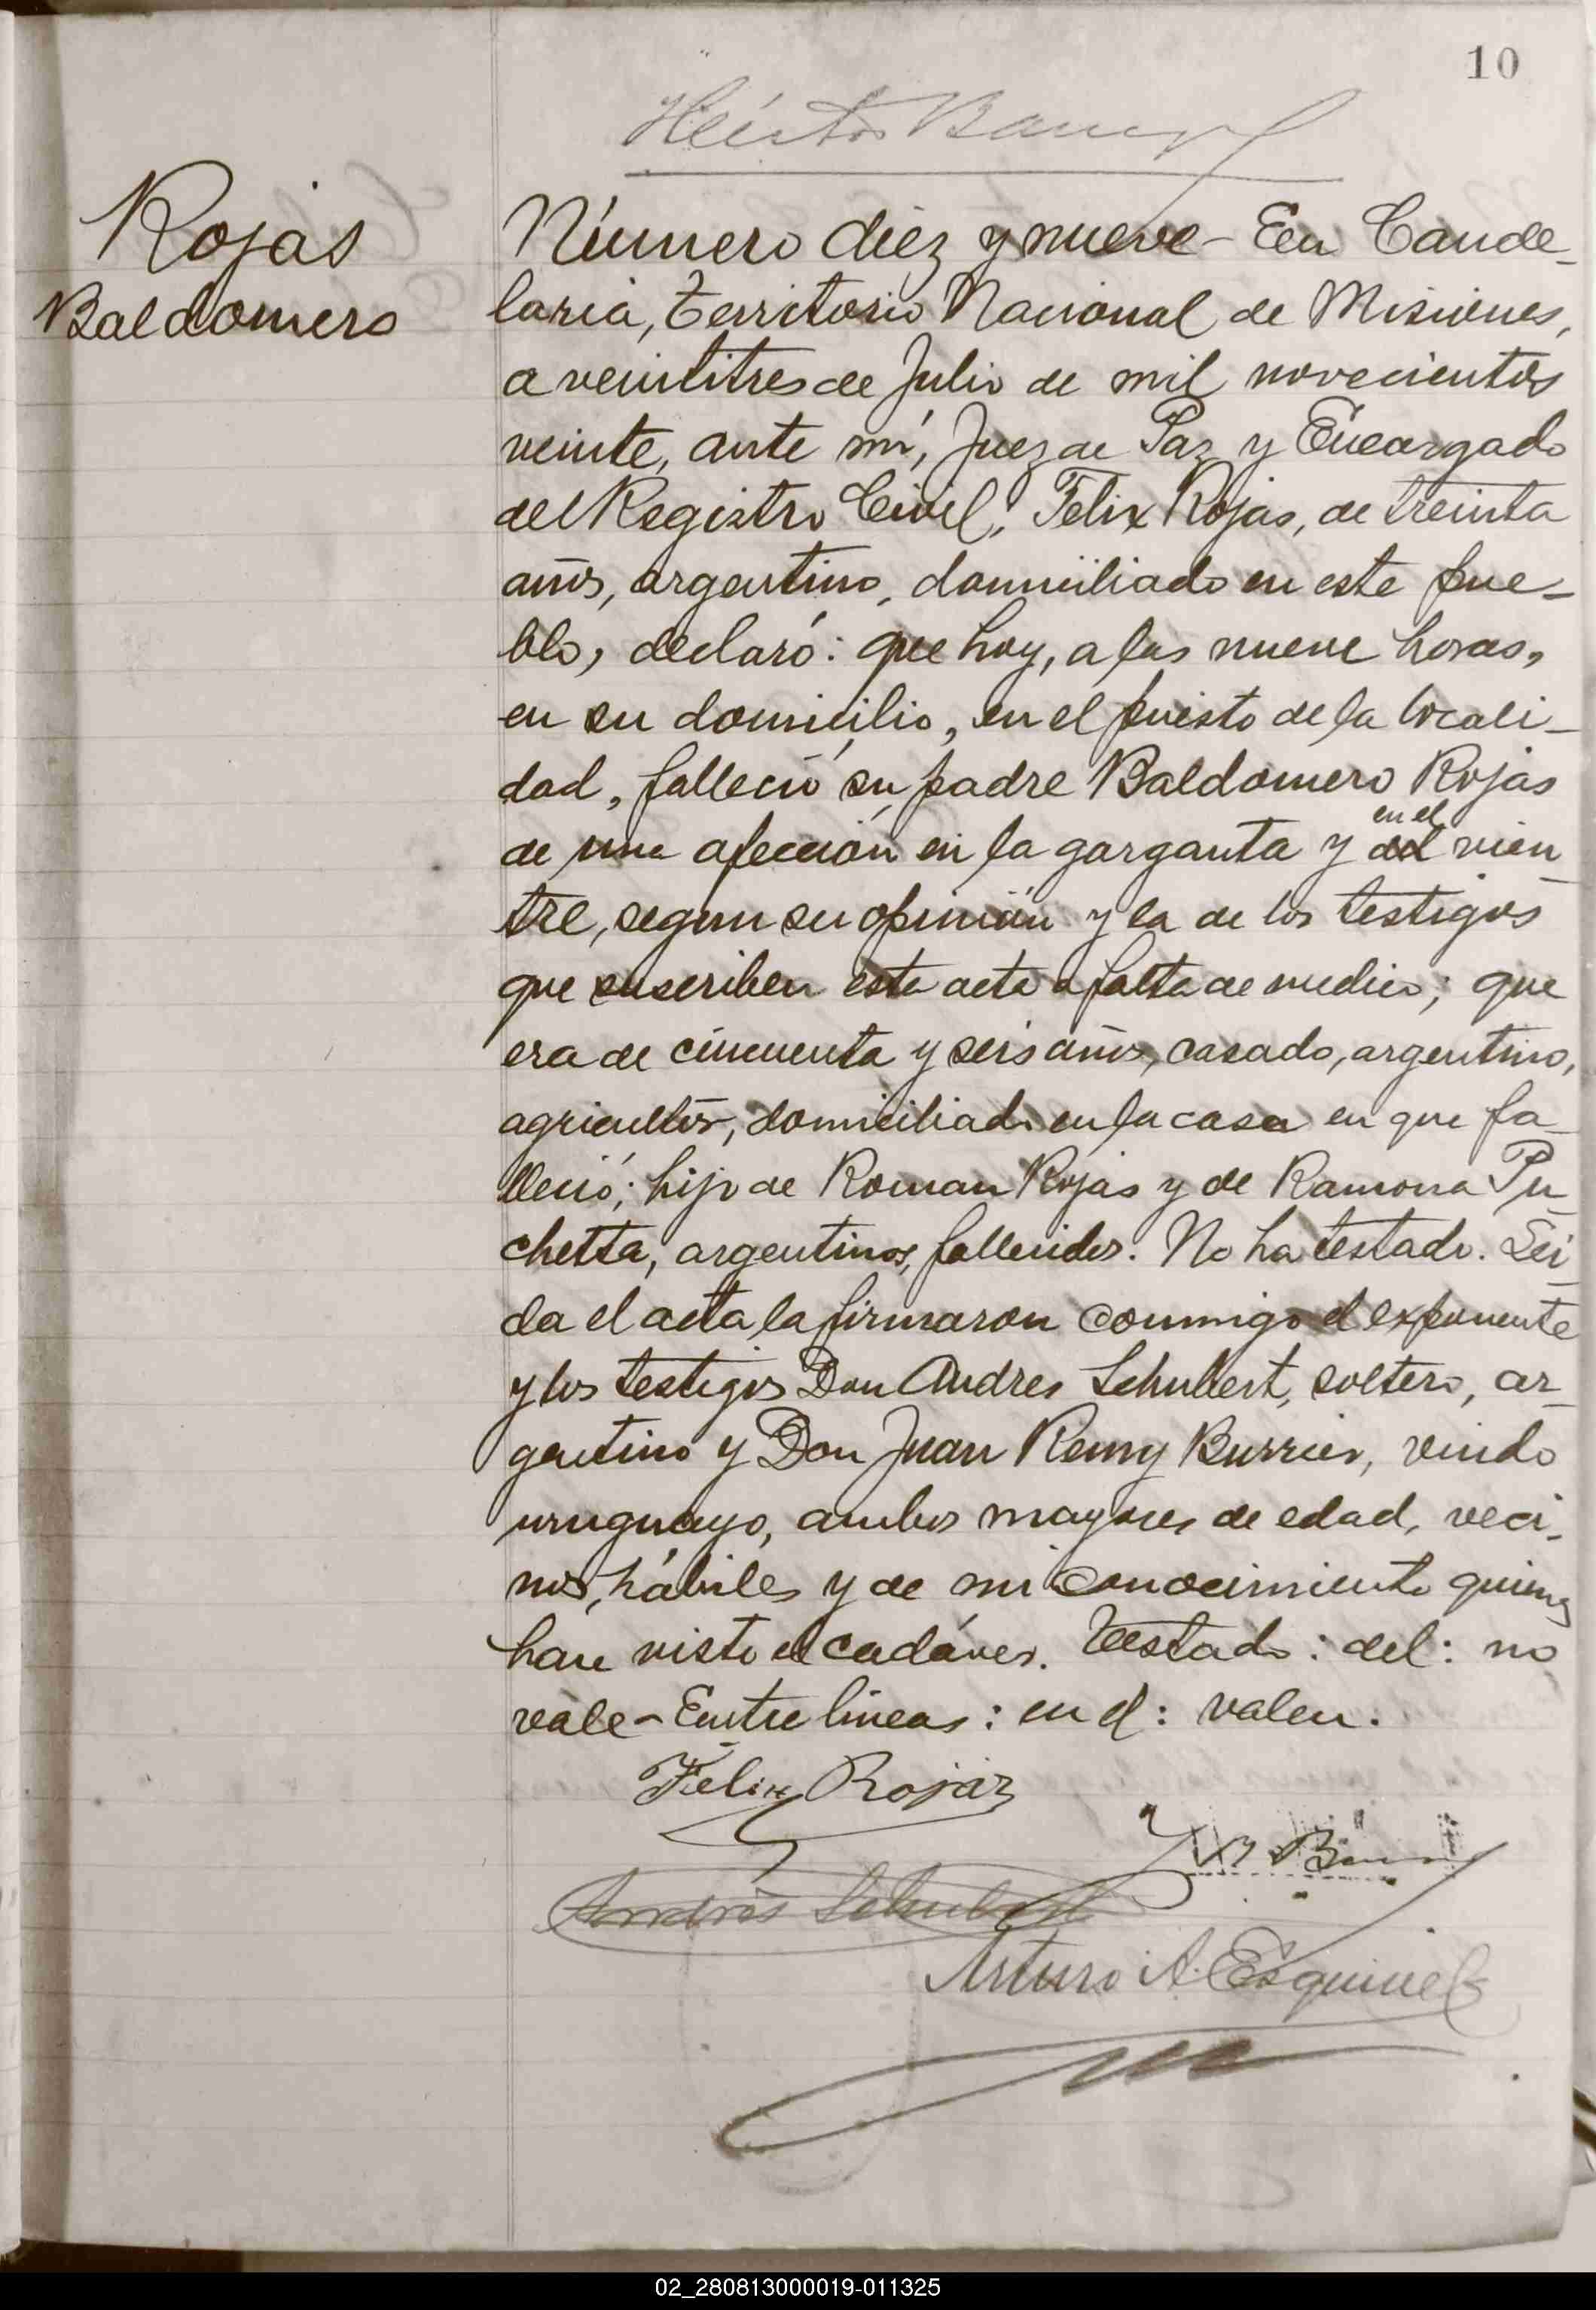 10
Rojas
Baldomero
Número diez y nueve - En Cande-
laria, territorio Nacional de Misiones,
a veintitres de Julio de mil novecientos
veinte, ante mí, Juez de Paz y Encargado
del Registro Civil, Felix Rojas, de treinta
años, argentino, domiciliado en este pue-
blo, declaró: que hoy, a las nueve horas,
en su domicilio, en el puesto de la locali-
dad, falleció su padre Baldomero Rojas
de una afección en la garganta y del en el vien
tre, segun su opinión y la de los testigos
que suscriben esta acta a falta de medico; que
era de cincuenta y seis años, casado, argentino,
agricultor, domiciliado en la casa en que fa
lleció; hijo de Roman Rojas y de Ramona Pu
chetta, argentinos, fallecidos. No ha testado. Lei
da el acta la firmaron conmigo el exponente
y los testigos Don Andres Schubert, soltero, ar-
gentino y Don Juan Remy Burrier, viudo
uruguayo, ambos mayores de edad, veci-
nos, hábiles y de mi conocimiento quienes
han visto el cadáver. Testado: del: no
vale - Entre lineas: en el: valen.
Felix Rojas
Andrés Schubert
Arturo A. Esquivel
02_280813000019-011325